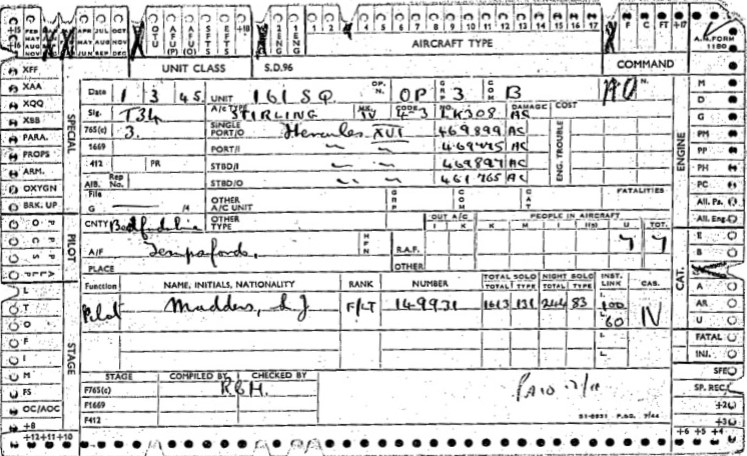 FEB MAY AUG APR JUL OCT JUN SEP DEC OTU AFU(P) AFU(O) SFTS EFTS +18 2 ENG 1 ENG 0 1 2 3 4 5 6 7 8 9 10 11 12 13 14 15 16 17 F C FT +17 A.M. FORM 1180
AIRCRAFT TYPE
UNIT CLASS S.D.96 COMMAND
XFF
XAA
XQQ
XBB
PARA.
PROPS
ARM.
OXYGN
BRK. UP
SPECIAL
Date 1 3 45 UNIT 161 SQ. OP. N. OP GRP 3 COM B
Sig. T34 A/C TYPE STIRLING MK. IV CODE 4-3 NO. LK308 DAMAGE AC COST
765(c) 3. SINGLE PORT/O Hercules XVI 469899 AC
1669 PORT/I AC
412 PR STBD/I 469897 AC
AIB. Rep No. STBD/O 461765 AC
ENG. TROUBLE
File G /4 OTHER A/C UNIT GRP COM CAT FATALITIES
CNTY Bedfordshire OTHER TYPE OUT A/C I K PEOPLE IN AIRCRAFT K M I U TOT.
A/F Tempsford. R.A.F. 7 7
PLACE OTHER
Function NAME, INITIALS, NATIONALITY RANK NUMBER TOTAL SOLO TOTAL TYPE NIGHT SOLO TOTAL TYPE INST. LINK CAS.
Pilot Madders, L J F/LT 149931 1613 131 244 83 I. 100 L. 60 IV
STAGE COMPILED BY CHECKED BY
F765(c) RBH.
F1669
F412
51-8931 P.&G. 7/44
PILOT
STAGE
L
T
O
F
I
M
FS
OC/AOC
+8
+12 +11 +10
ENGINE
M
D
G
PM
PP
PH
PC
All. Pa.
All. Eng.
E
B
CAT.
A
AR
U
FATAL
INJ.
SFE
SP. REC.
+2
+3
+6 +5 +4